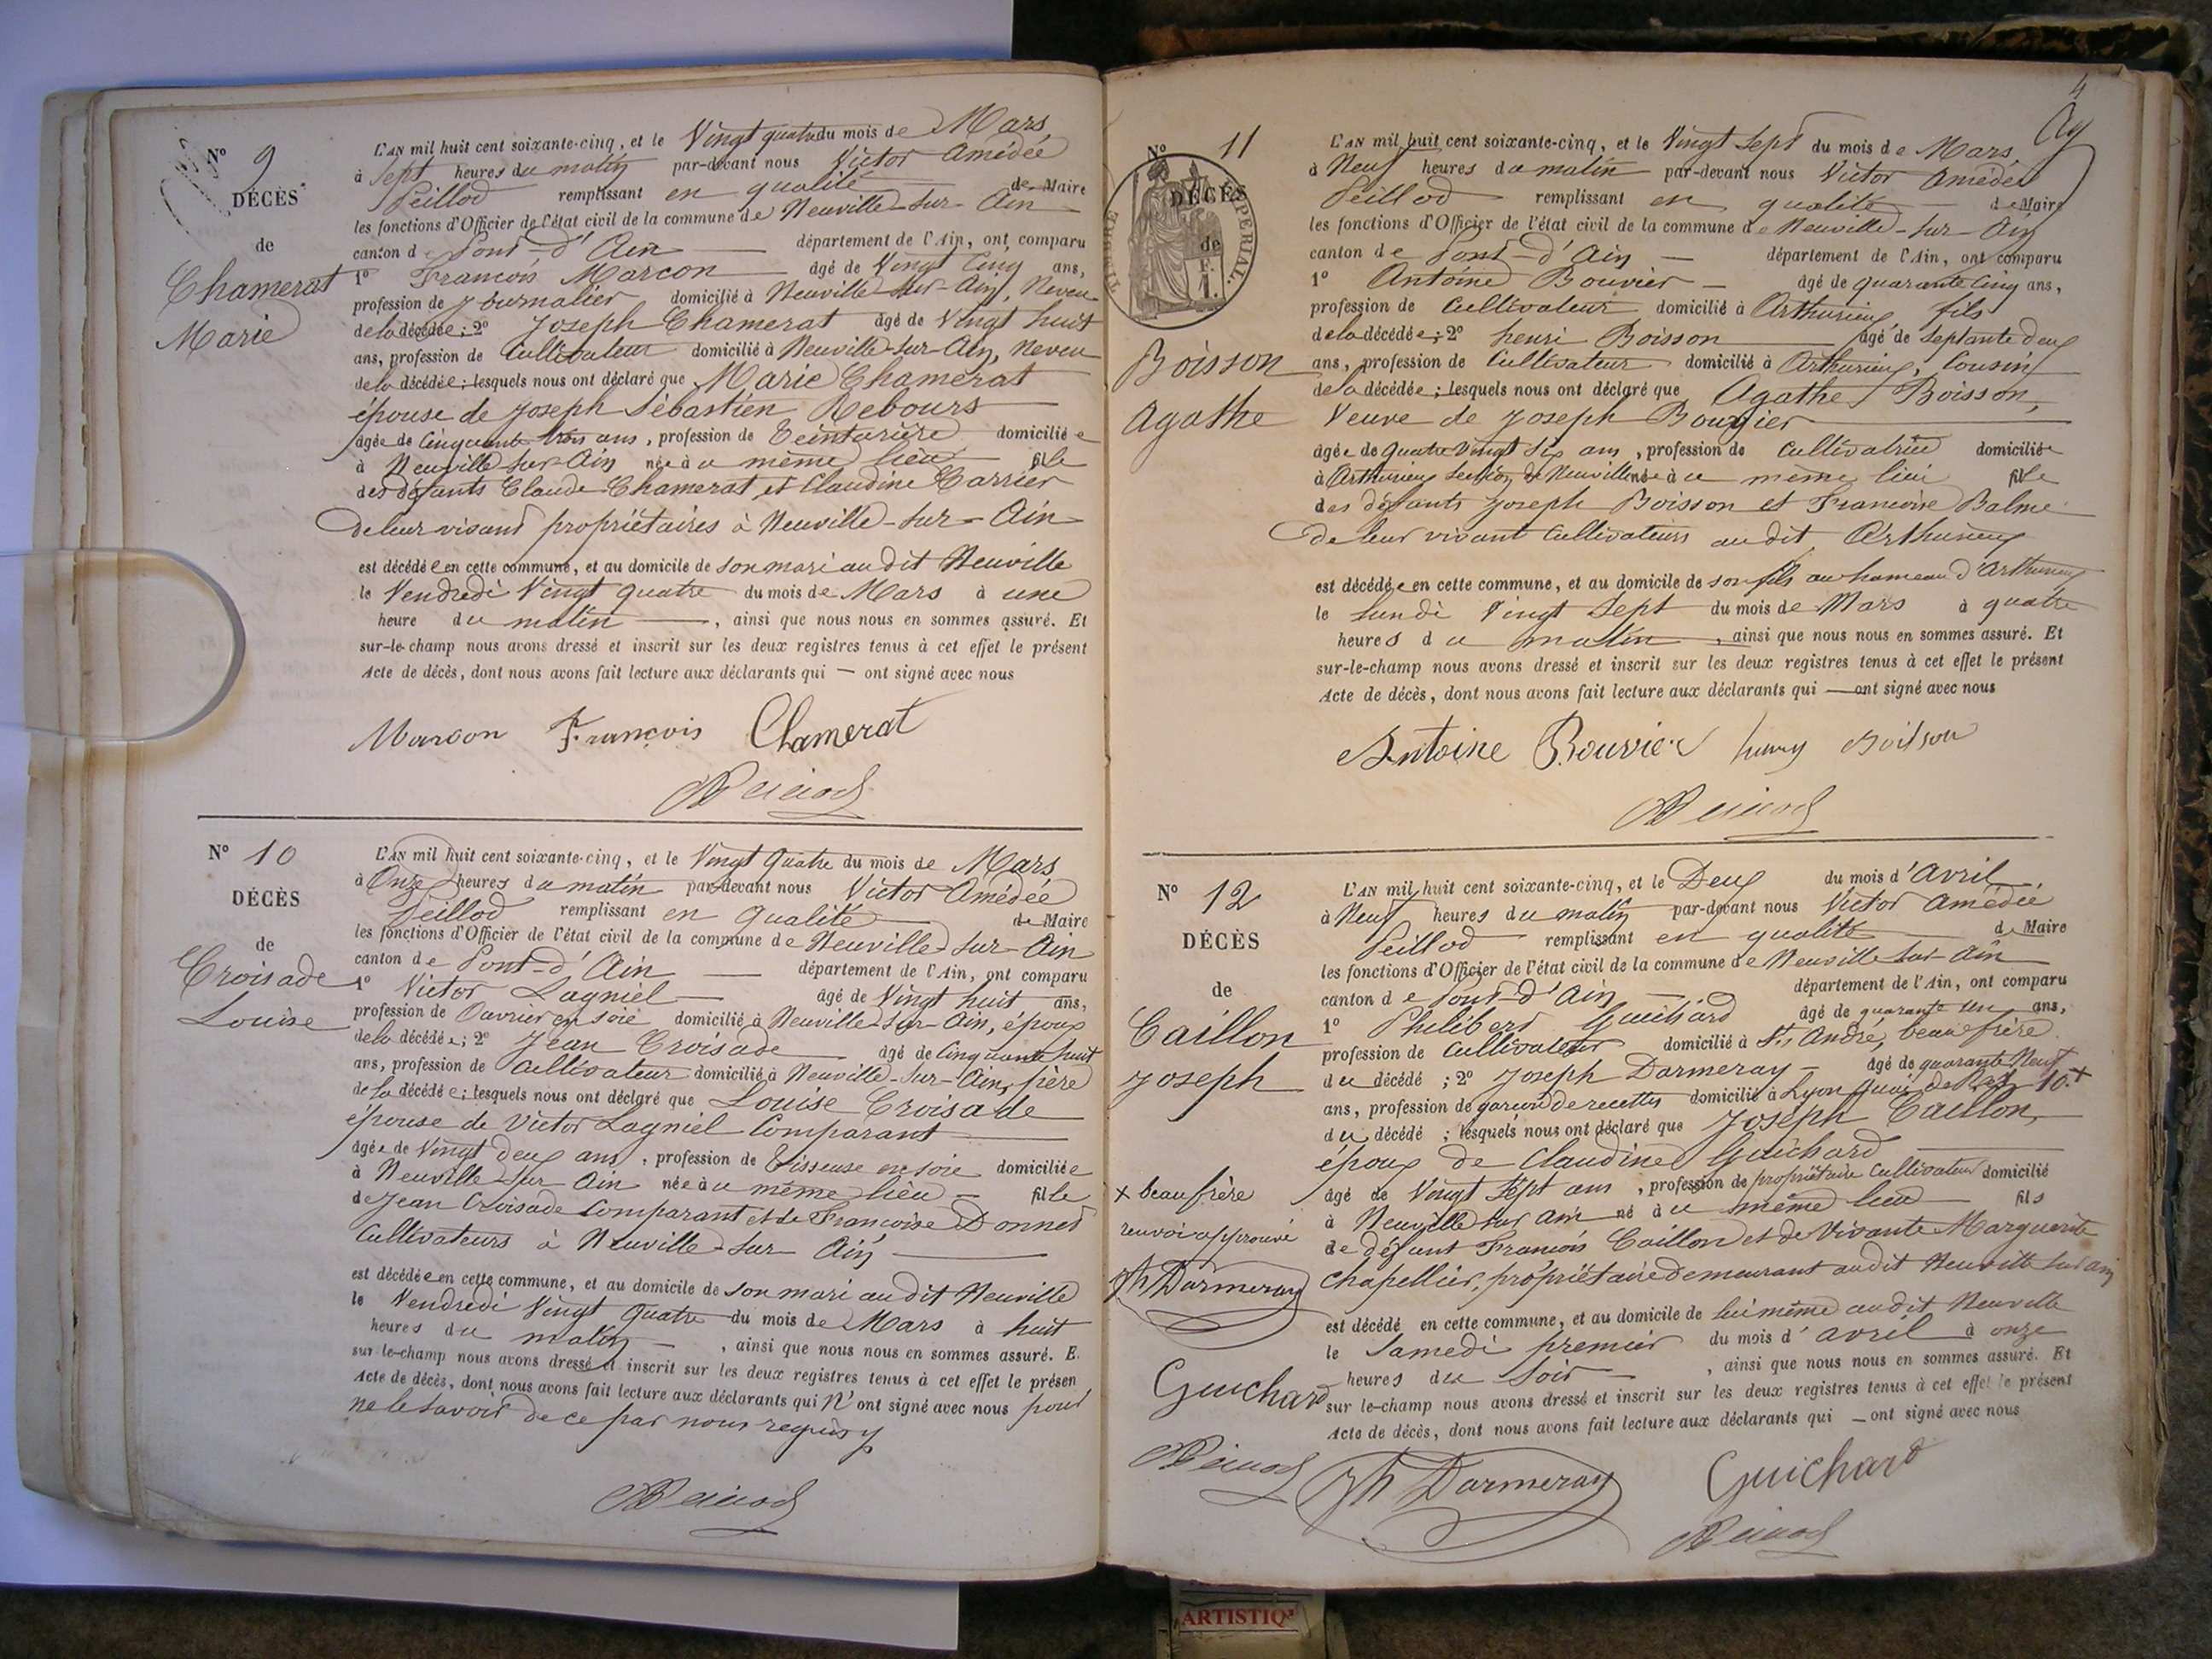 N° 9
DÉCÈS
de
Chamerat
Marie
L'AN mil huit cent soixante-cinq, et le Vingt quatre du mois de Mars,
à Sept heures du matin par-devant nous Victor Amédée
Peillod remplissant en qualité de Maire
les fonctions d'Officier de l'état civil de la commune de Neuville-sur-Ain
canton de Pont-d'Ain département de l'Ain, ont comparu
1° François Marcon âgé de Vingt Cinq ans,
profession de journalier domicilié à Neuville-sur-Ain, Neveu
de la décédée; 2° Joseph Chamerat âgé de Vingt huit
ans, profession de Cultivateur domicilié à Neuville-sur-Ain, neveu
de la décédée; lesquels nous ont déclaré que Marie Chamerat
épouse de Joseph Sébastien Rebours
âgée de Cinquante trois ans, profession de Teinturière domiciliée
à Neuville-sur-Ain née au même lieu fille
des défunts Claude Chamerat et Claudine Carrier
de leur vivant propriétaires à Neuville-sur-Ain
est décédée en cette commune, et au domicile de son mari au dit Neuville
le Vendredi Vingt quatre du mois de Mars à une
heure du matin, ainsi que nous nous en sommes assuré. Et
sur-le-champ nous avons dressé et inscrit sur les deux registres tenus à cet effet le présent
Acte de décès, dont nous avons fait lecture aux déclarants qui — ont signé avec nous
Marcon François Chamerat
N° 10
DÉCÈS
de
Croisade
Louise
L'AN mil huit cent soixante-cinq, et le Vingt Quatre du mois de Mars
à Onze heures du matin par-devant nous Victor Amédée
Peillod remplissant en qualité de Maire
les fonctions d'Officier de l'état civil de la commune de Neuville-sur-Ain
canton de Pont-d'Ain département de l'Ain, ont comparu
1° Victor Lagniel âgé de Vingt huit ans,
profession de Ouvrier en soie domicilié à Neuville-sur-Ain, époux
de la décédée; 2° Jean Croisade âgé de Cinquante huit
ans, profession de Cultivateur domicilié à Neuville-sur-Ain, père
de la décédée; lesquels nous ont déclaré que Louise Croisade
épouse de Victor Lagniel Comparant
âgée de Vingt deux ans, profession de Tisseuse en soie domiciliée
à Neuville-sur-Ain née au même lieu fille
de Jean Croisade Comparant et de Françoise Donnet
Cultivateurs à Neuville-sur-Ain
est décédée en cette commune, et au domicile de son mari au dit Neuville
le Vendredi Vingt Quatre du mois de Mars à huit
heures du matin, ainsi que nous nous en sommes assuré. E
sur-le-champ nous avons dressé et inscrit sur les deux registres tenus à cet effet le présen
Acte de décès, dont nous avons fait lecture aux déclarants qui n'ont signé avec nous pour
ne le savoir de ce par nous requis
4
N° 11
DÉCÈS
de
Boisson
Agathe
L'AN mil huit cent soixante-cinq, et le Vingt Sept du mois de Mars,
à Neuf heures du matin par-devant nous Victor Amédée
Peillod remplissant en qualité de Maire
les fonctions d'Officier de l'état civil de la commune de Neuville-sur-Ain
canton de Pont-d'Ain département de l'Ain, ont comparu
1° Antoine Bouvier âgé de quarante Cinq ans,
profession de Cultivateur domicilié à Arthurieux, fils
de la décédée; 2° henri Boisson âgé de Septante deux
ans, profession de Cultivateur domicilié à Arthurieux, Cousin
de la décédée; lesquels nous ont déclaré que Agathe Boisson,
Veuve de Joseph Bouvier
âgée de Quatre Vingt Six ans, profession de Cultivatrice domiciliée
à Arthurieux Section de Neuville née au même lieu fille
des défunts Joseph Boisson et Françoise Balme
de leur vivant Cultivateurs au dit Arthurieux
est décédée en cette commune, et au domicile de son fils au hameau d'Arthurieux
le Lundi Vingt Sept du mois de Mars à quatre
heures du matin, ainsi que nous nous en sommes assuré. Et
sur-le-champ nous avons dressé et inscrit sur les deux registres tenus à cet effet le présent
Acte de décès, dont nous avons fait lecture aux déclarants qui — ont signé avec nous
Antoine Bouvier henry Boisson
N° 12
DÉCÈS
de
Caillon
Joseph
L'AN mil huit cent soixante-cinq, et le Deux du mois d'Avril
à Neuf heures du matin par-devant nous Victor Amédée
Peillod remplissant en qualité de Maire
les fonctions d'Officier de l'état civil de la commune de Neuville-sur-Ain
canton de Pont-d'Ain département de l'Ain, ont comparu
1° Philibert Guichard âgé de quarante un ans,
profession de Cultivateur domicilié à St André, beau frère
du décédé; 2° Joseph Darmeray âgé de quarante Neuf
ans, profession de garçon de recettes domicilié à Lyon quai de Retz 10 +
du décédé; lesquels nous ont déclaré que Joseph Caillon,
époux de Claudine Guichard
âgé de Vingt Sept ans, profession de propriétaire Cultivateur domicilié
à Neuville sur Ain né au même lieu fils
de défunt François Caillon et de Vivante Marguerite
Chapellier, propriétaire demeurant au dit Neuville sur ain
est décédé en cette commune, et au domicile de lui même au dit Neuville
le Samedi premier du mois d'avril à onze
heures du Soir, ainsi que nous nous en sommes assuré. Et
sur le-champ nous avons dressé et inscrit sur les deux registres tenus à cet effet le présent
Acte de décès, dont nous avons fait lecture aux déclarants qui — ont signé avec nous
+ beau frère
renvoi approuvé
Jh Darmeray
Guichard
Jh Darmeray Guichard
ARTISTIQ